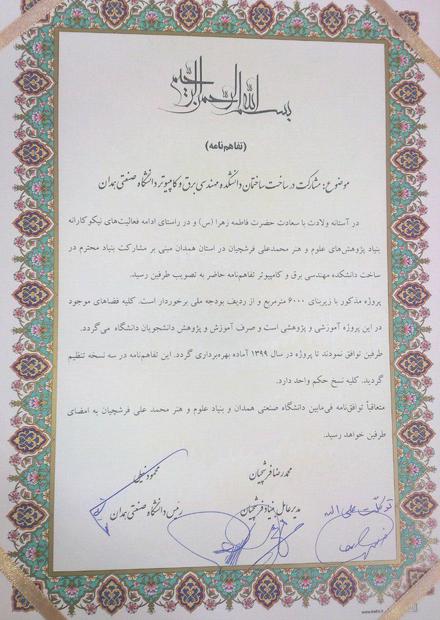 بسم الله الرحمن الرحیم
(تفاهم‌نامه)
موضوع: مشارکت در ساخت ساختمان دانشکده مهندسی برق و کامپیوتر دانشگاه صنعتی همدان
در آستانه ولادت با سعادت حضرت فاطمه زهرا (س) و در راستای ادامه فعالیت‌های نیکوکارانه
بنیاد پژوهش‌های علوم و هنر محمدعلی فرشچیان در استان همدان مبنی بر مشارکت بنیاد محترم در
ساخت دانشکده مهندسی برق و کامپیوتر تفاهم‌نامه حاضر به تصویب طرفین رسید.
پروژه مذکور با زیربنای ۶۰۰۰ مترمربع و از ردیف بودجه ملی برخوردار است. کلیه فضاهای موجود
در این پروژه آموزشی و پژوهشی است و صرف آموزش و پژوهش دانشجویان دانشگاه می‌گردد.
طرفین توافق نمودند تا پروژه در سال ۱۳۹۹ آماده بهره‌برداری گردد. این تفاهم‌نامه در سه نسخه تنظیم
گردید. کلیه نسخ حکم واحد دارد.
متعاقباً توافق‌نامه فی‌مابین دانشگاه صنعتی همدان و بنیاد علوم و هنر محمد علی فرشچیان به امضای
طرفین خواهد رسید.
محمدرضا فرشچیان
محمود نیلی
مدیرعامل بنیاد فرشچیان
رئیس دانشگاه صنعتی همدان
توکلت علی الله